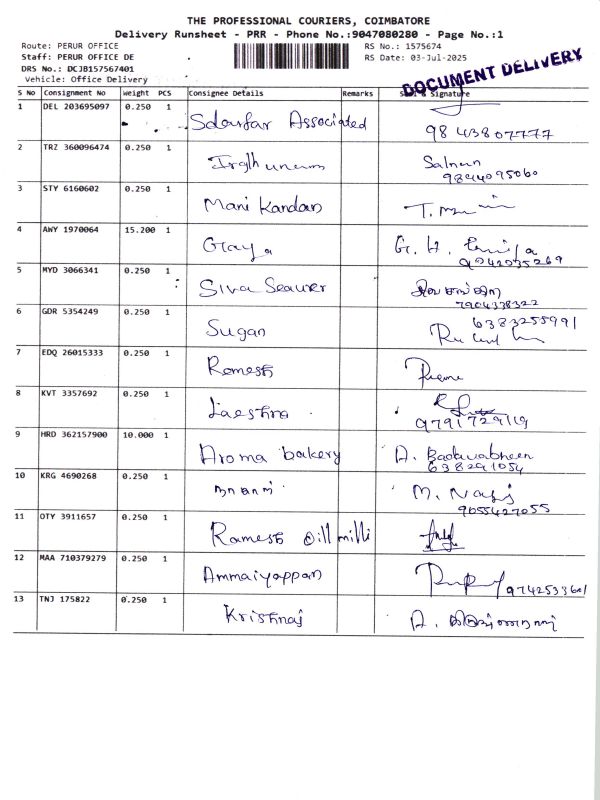 THE PROFESSIONAL COURIERS, COIMBATORE
Delivery Runsheet - PRR - Phone No.:9047080280 - Page No.:1
Route: PERUR OFFICE
Staff: PERUR OFFICE DE
DRS No.: DCJB157567401
Vehicle: Office Delivery
RS No.: 1575674
RS Date: 03-Jul-2025
DOCUMENT DELIVERY
S No Consignment No Weight PCS Consignee Details Remarks Signature
1 DEL 203695097 0.250 1 Associated
9843807777
2 TRZ 360096474 0.250 1
Salman
9844095060
3 STY 6160602 0.250 1 Mani Kandan T.
4 AWY 1970064 15.200 1 G. H.
9942035269
5 MYD 3066341 0.250 1 Siva
7904338322
6 GDR 5354249 0.250 1 Sugan 6383255991
7 EDQ 26015333 0.250 1 Ramesh
8 KVT 3357692 0.250 1
9791729119
9 HRD 362157900 10.000 1 Aroma bakery A.
638291054
10 KRG 4690268 0.250 1 M.
9055427055
11 OTY 3911657 0.250 1 Ramesh oill milli
12 MAA 710379279 0.250 1 Ammaiyappan
13 TNJ 175822 0.250 1 Krishnaj A.